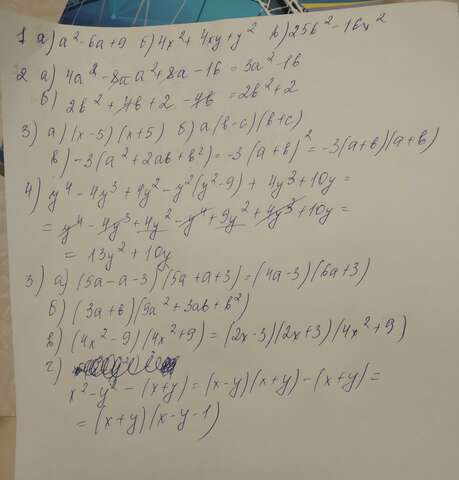 1 а) a² - 6a + 9 б) 4x² + 4xy + y² в) 25b² - 16y²
2 а) 4a² - 8a - a² + 8a - 16 = 3a² - 16
б) 2b² + 4b + 2 - 4b = 2b² + 2
3) а) (x - 5)(x + 5) б) a(b - c)(b + c)
в) -3(a² + 2ab + b²) = -3(a + b)² = -3(a + b)(a + b)
4) y⁴ - 4y³ + 4y² - y²(y² - 9) + 4y³ + 10y =
= y⁴ - 4y³ + 4y² - y⁴ + 9y² + 4y³ + 10y =
= 13y² + 10y
5) а) (5a - a - 3)(5a + a + 3) = (4a - 3)(6a + 3)
б) (3a + b)(9a² + 3ab + b²)
в) (4x² - 9)(4x² + 9) = (2x - 3)(2x + 3)(4x² + 9)
г)
x² - y² - (x + y) = (x - y)(x + y) - (x + y) =
= (x + y)(x - y - 1)